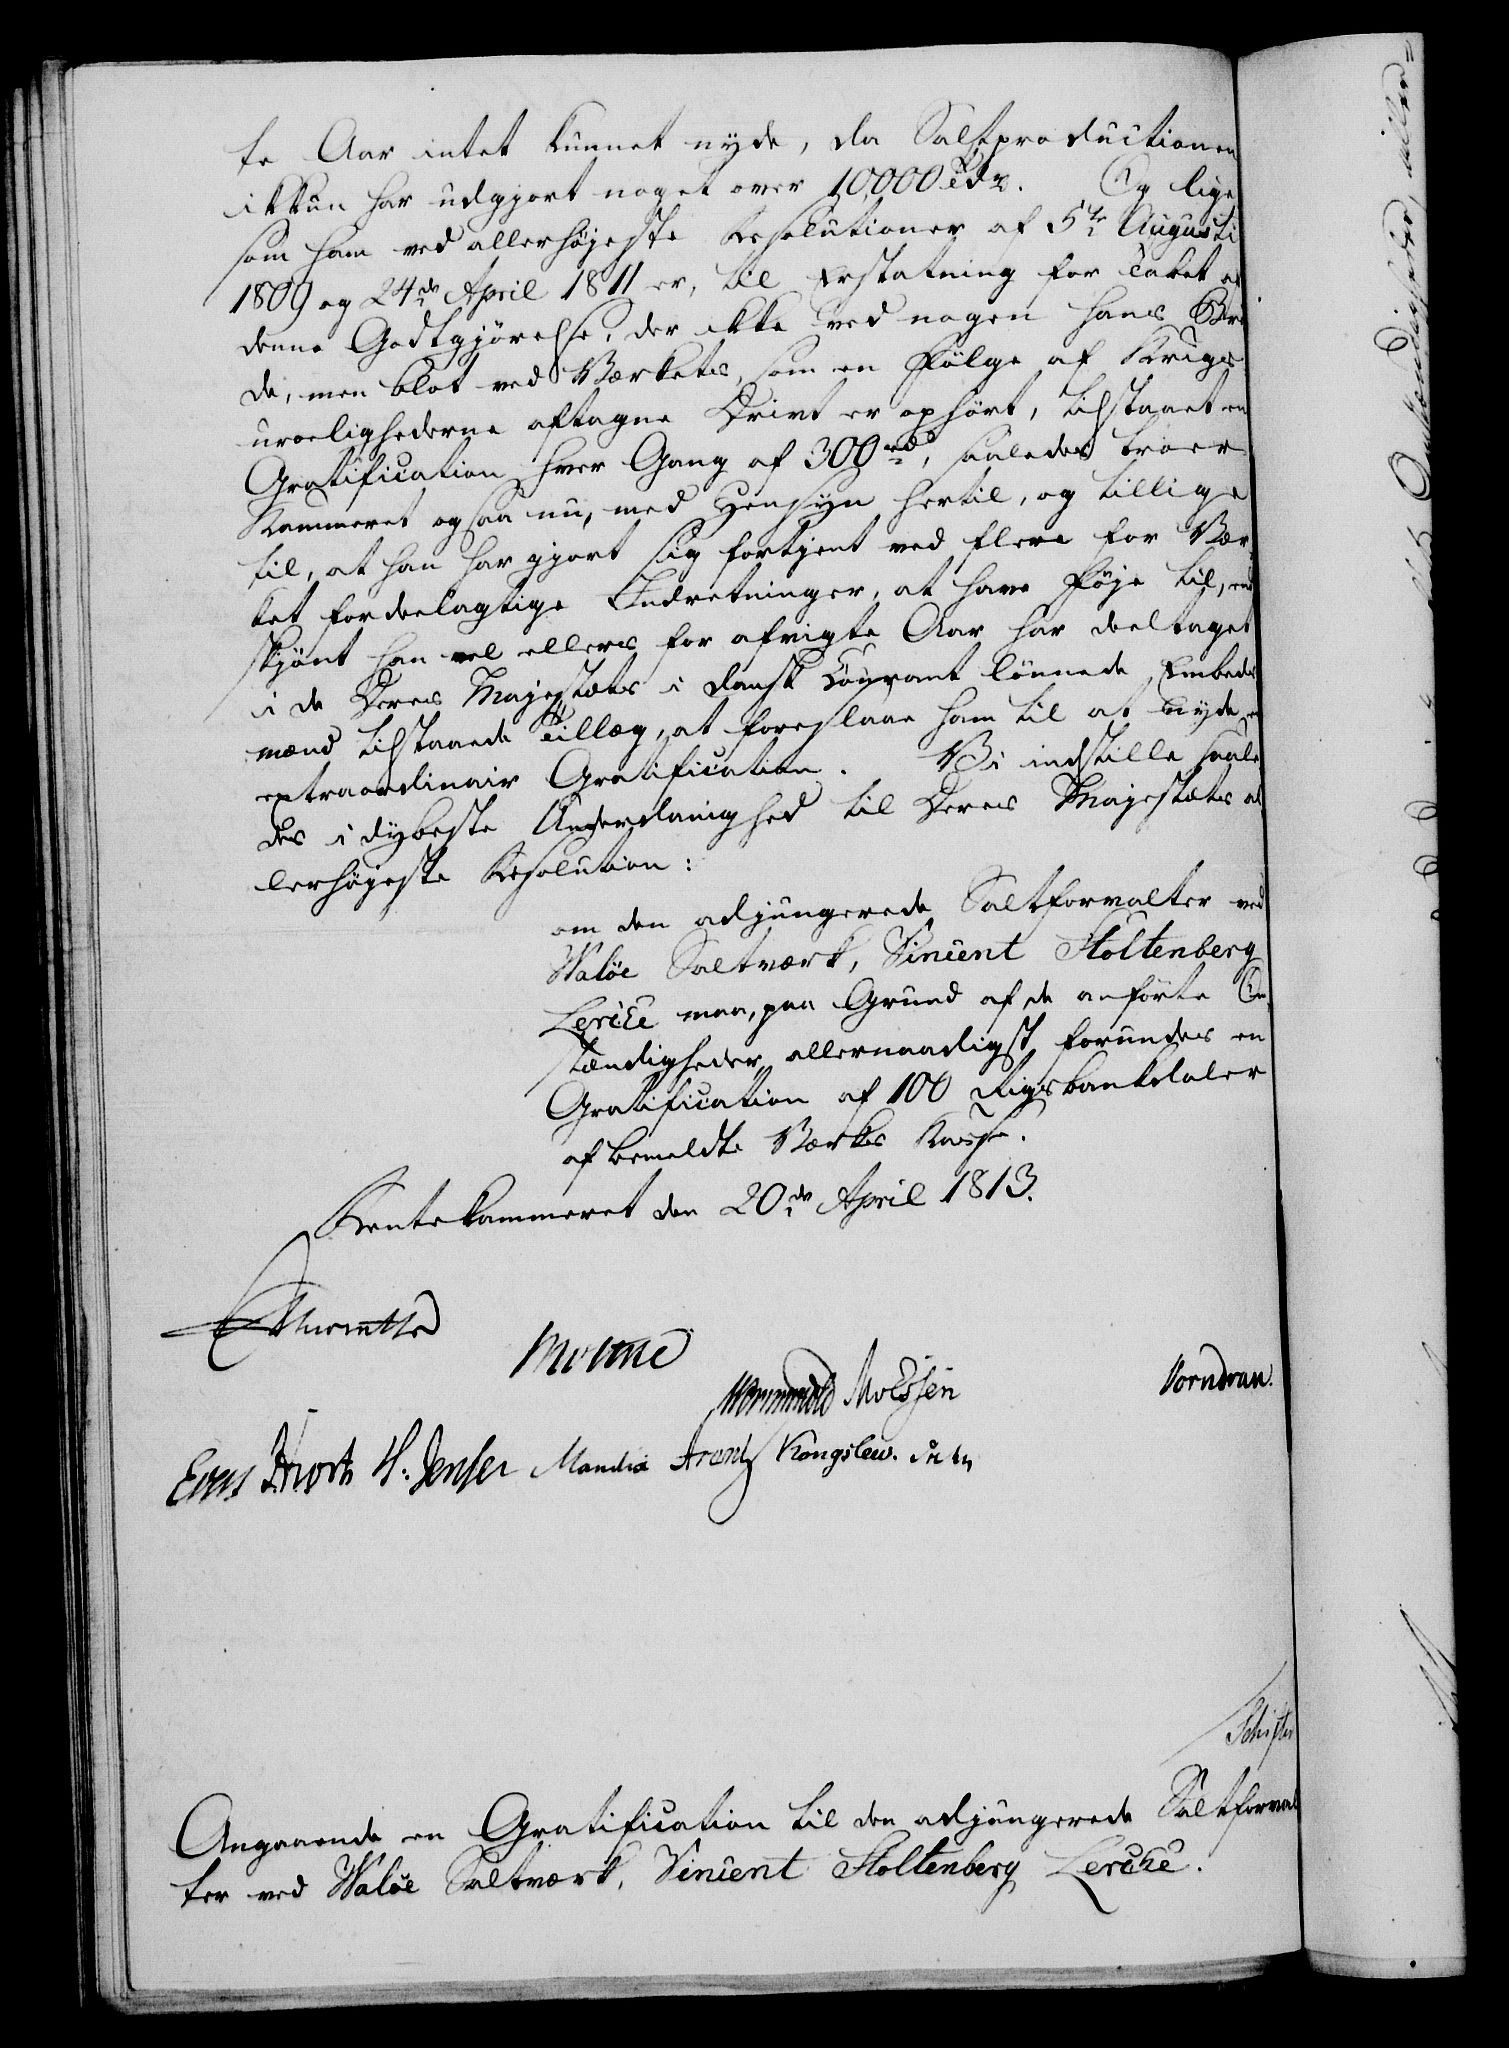 te Aar intet kunnet nyde, da Saltproductionen
ikkun har udgjort noget over 10,000 Tdr. Og lige
som ham ved allerhøjeste Resolutioner af 5te Augusti
1809 og 24de April 1811 er, til Erstatning for Tabet af
denne Godtgjørelse, der ikke ved nogen hans Brø
de, men blot ved Værkets, som en Følge af Krigs
uroelighederne aftagne Drivt er ophørt, tilstaaet en
Gratification hver Gang af 300 rd, saaledes troer
Kammeret ogsaa nu, med Hensyn hertil, og tillige
til, at han har gjort sig fortjent ved flere for Vær
ket fordeelagtige Indretninger, at have Føje til, end
skjønt han vel ellers for afvigte Aar har deeltaget
i de Deres Majestæts i dansk Courant lønnede Embeds
mænd tilstaaede Tillæg, at foreslaae ham til at nyde en
extraordinair Gratification. Vi indstille saale
des i dybeste Underdanighed til Deres Majestæts al
lerhøjeste Resolution:
om den adjungerede Saltforvalter ved
Waløe Saltværk, Vincent Stoltenberg
Lerche maa, paa Grund af de anførte Om
stændigheder allernaadigst forundes en
Gratification af 100 Rigsbankdaler
af bemeldte Værks Kasse.
Rentekammeret den 20de April 1813.
Mourier
Wormskiold Moessen Vorndran.
Hjort H: Jensen Manthe Arentz Kongslew.
Schifter
Angaaende en Gratification til den adjungerede Saltforval
ter ved Waløe Saltværk, Vincent Stoltenberg Lerche.